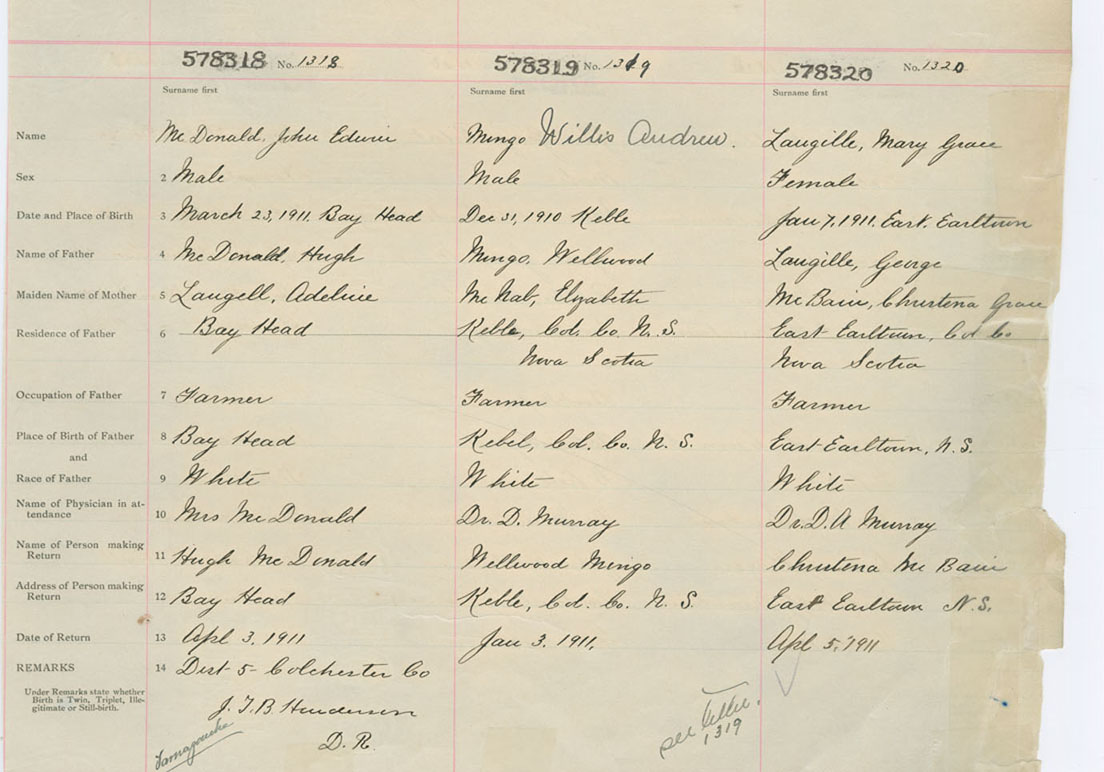 578318 No. 1318 578319 No. 1319 578320 No. 1320
Surname first Surname first Surname first
Name Mc Donald, John Edwin Mingo Willis Andrew. Langille, Mary Grace
Sex 2 Male Male Female
Date and Place of Birth 3 March 23, 1911. Bay Head Dec 31, 1910 Keble Jan 7, 1911. East. Earltown
Name of Father 4 Mc Donald, Hugh Mingo, Wellwood Langille, George
Maiden Name of Mother 5 Langell, Adeline Mc Nab, Elizabeth Mc Bain, Christena Grace
Residence of Father 6 Bay Head Keble, Col. Co. N. S. East Earltown, Col Co
Nova Scotia Nova Scotia
Occupation of Father 7 Farmer Farmer Farmer
Place of Birth of Father 8 Bay Head Kebel, Col. Co. N. S. East Earltown, N. S.
and
Race of Father 9 White White White
Name of Physician in at-
tendance 10 Mrs Mc Donald Dr. D. Murray Dr. D. A Murray
Name of Person making
Return 11 Hugh Mc Donald Wellwood Mingo Christena Mc Bain
Address of Person making
Return 12 Bay Head Keble, Col. Co. N. S. East Earltown N.S.
Date of Return 13 Apl 3. 1911 Jan 3. 1911. Apl 5. 1911
REMARKS 14 Dist 5 - Colchester Co
Under Remarks state whether
Birth is Twin, Triplet, Ille-
gitimate or Still-birth.
J. T. B. Henderson
D. R.
Tamagouche
see letter.
1319